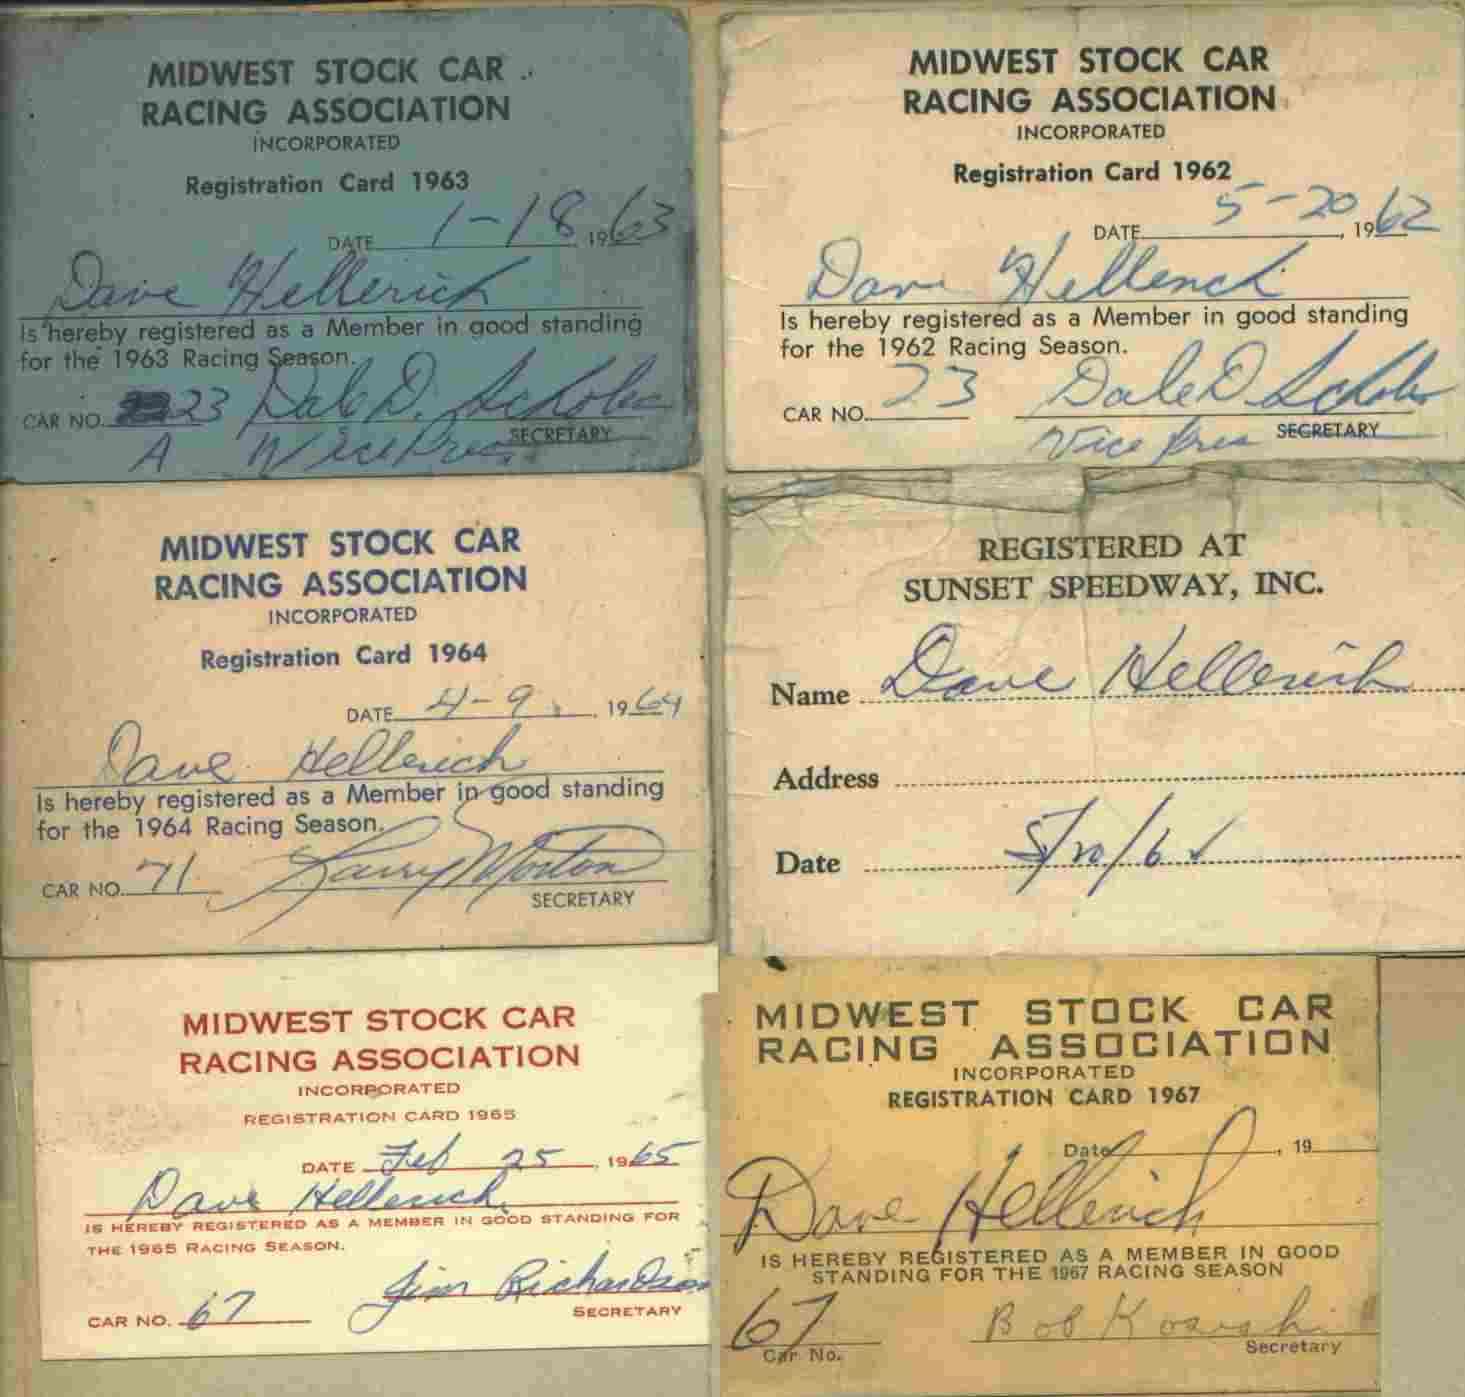 MIDWEST STOCK CAR
RACING ASSOCIATION
INCORPORATED
Registration Card 1963
DATE 1-18 1963
Dave Hellerich
Is hereby registered as a Member in good standing
for the 1963 Racing Season.
CAR NO. 23 Dale D. Scholer
SECRETARY
A Vice Pres
MIDWEST STOCK CAR
RACING ASSOCIATION
INCORPORATED
Registration Card 1962
DATE 5-20, 1962
Dave Hellerich
Is hereby registered as a Member in good standing
for the 1962 Racing Season.
CAR NO. 23 Dale D Scholer
Vice Pres SECRETARY
MIDWEST STOCK CAR
RACING ASSOCIATION
INCORPORATED
Registration Card 1964
DATE 4-9, 1964
Dave Hellerich
Is hereby registered as a Member in good standing
for the 1964 Racing Season.
CAR NO. 71 Larry Morton
SECRETARY
REGISTERED AT
SUNSET SPEEDWAY, INC.
Name Dave Hellerich
Address
Date
MIDWEST STOCK CAR
RACING ASSOCIATION
INCORPORATED
REGISTRATION CARD 1965
DATE Feb 25, 1965
Dave Hellerich
IS HEREBY REGISTERED AS A MEMBER IN GOOD STANDING FOR
THE 1965 RACING SEASON.
Jim Richardson
CAR NO. 67 SECRETARY
MIDWEST STOCK CAR
RACING ASSOCIATION
INCORPORATED
REGISTRATION CARD 1967
Date , 19
Dave Hellerich
IS HEREBY REGISTERED AS A MEMBER IN GOOD
STANDING FOR THE 1967 RACING SEASON
67 Bob Kosiski
Car No. Secretary